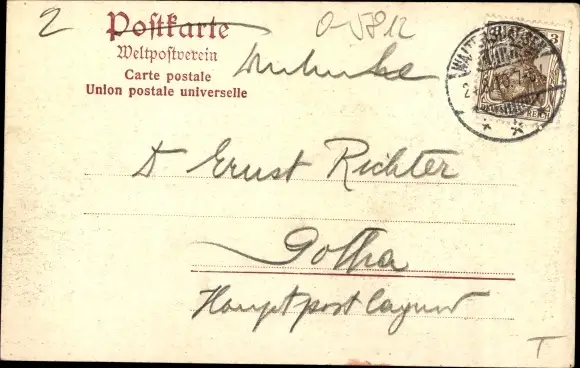 2
Postkarte
0-5812
Weltpostverein
Carte postale
Drucksache
Union postale universelle
3
WALTERSHAUSEN
Dr Ernst Richter
Gotha
Hauptpostlagernd
T